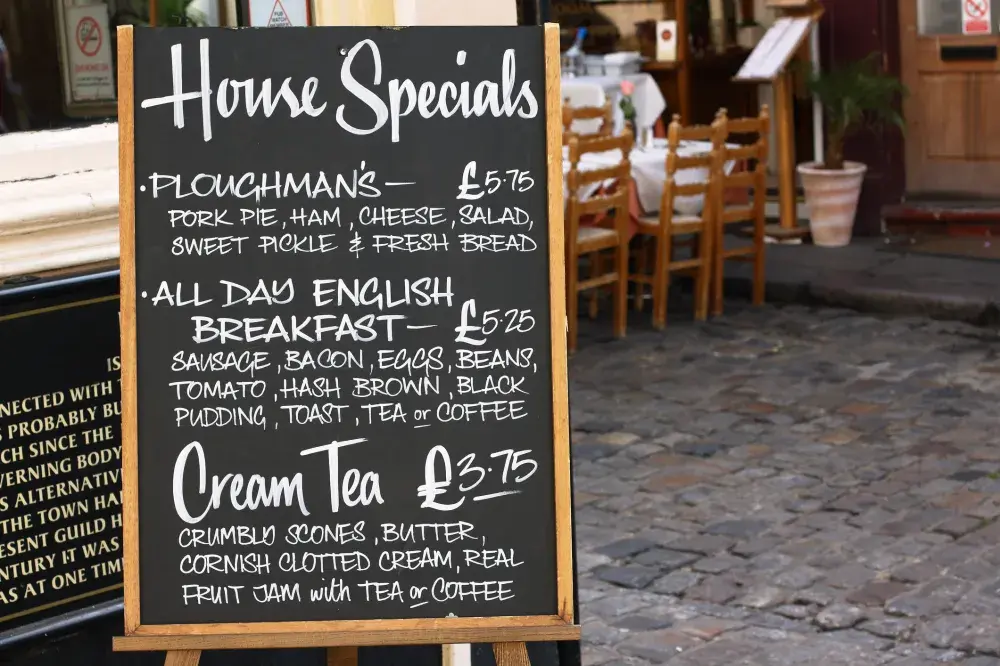 House Specials
·PLOUGHMAN'S— £5·75
PORK PIE, HAM, CHEESE, SALAD,
SWEET PICKLE & FRESH BREAD
·ALL DAY ENGLISH
BREAKFAST— £5·25
SAUSAGE, BACON, EGGS, BEANS,
TOMATO, HASH BROWN, BLACK
PUDDING, TOAST, TEA or COFFEE
Cream Tea £3·75
CRUMBLY SCONES, BUTTER,
CORNISH CLOTTED CREAM, REAL
FRUIT JAM with TEA or COFFEE
IS
NECTED WITH
PROBABLY BU
CH SINCE THE
VERNING BODY
S ALTERNATIV
THE TOWN HA
ESENT GUILD H
NTURY IT WAS
AS AT ONE TIM